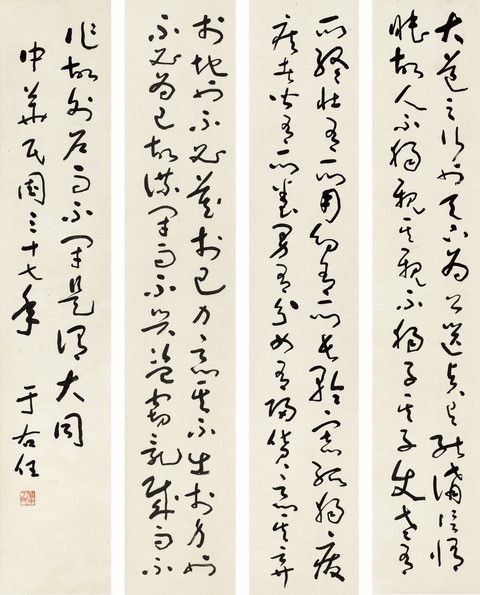 大道之行也天下為公選賢與能講信修
睦故人不獨親其親不獨子其子使老有
所終壯有所用幼有所長矜寡孤獨廢
疾者皆有所養男有分女有歸貨惡其棄
於地也不必藏於己力惡其不出於身也
不必為己故謀閉而不興盜竊亂賊而不
作故外戶而不閉是謂大同
中華民國三十七年 于右任